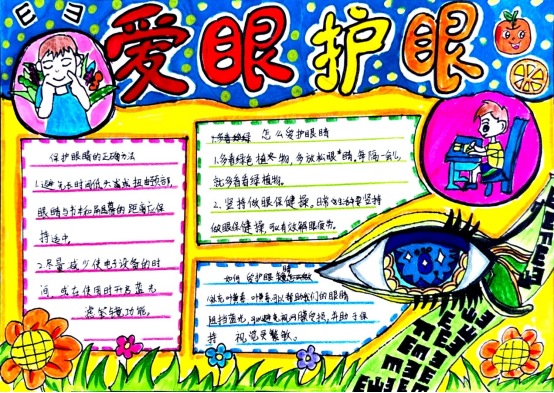 爱眼护眼
保护眼睛的正确方法
1.避免长时间低头或扭曲颈部,
眼睛与书本和屏幕的距离应保
持适中。
2.尽量减少使电子设备的时
间,或在使用时开启蓝光
滤镜功能。
怎么爱护眼睛
1.多看绿色植物,多放松眼睛,每隔一会儿
就多看看绿植物。
2、坚持做眼保健操,日常生活中要坚持
做眼保健操,可以有效解眼疲劳。
如何爱护眼睛
补充叶黄素,叶黄素可以帮助我们的眼睛
阻挡蓝光,可以避免视网膜受损,并助于保
持 视觉灵敏。